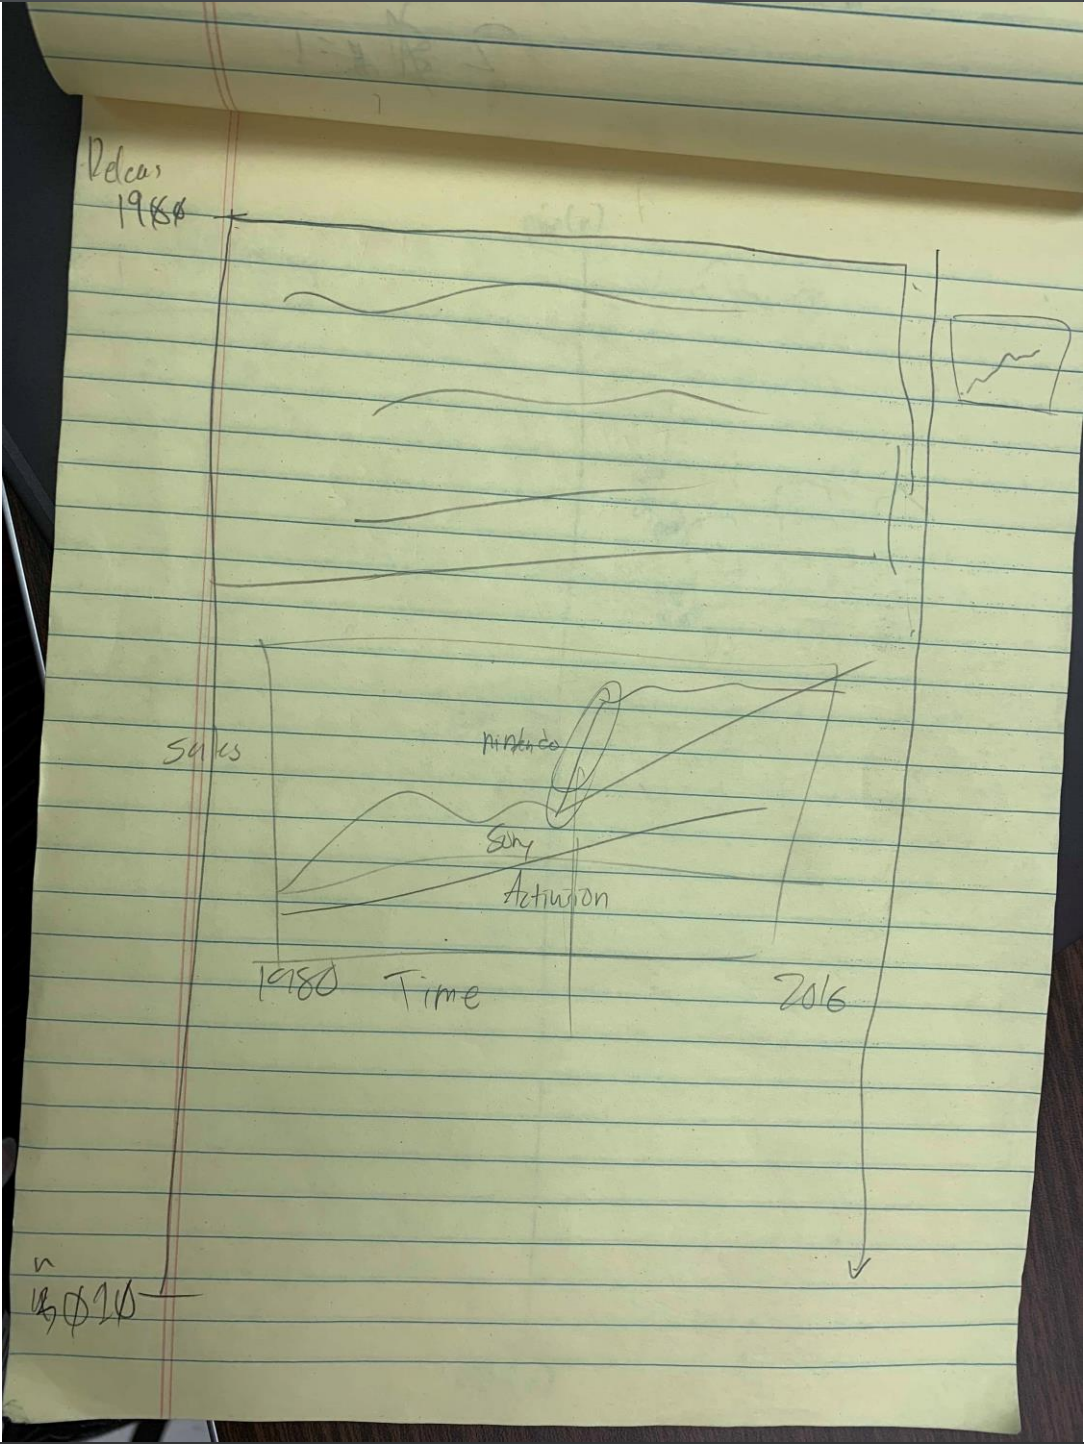 1980
Sales
nintendo
Sony
Activision
1980 Time 2016